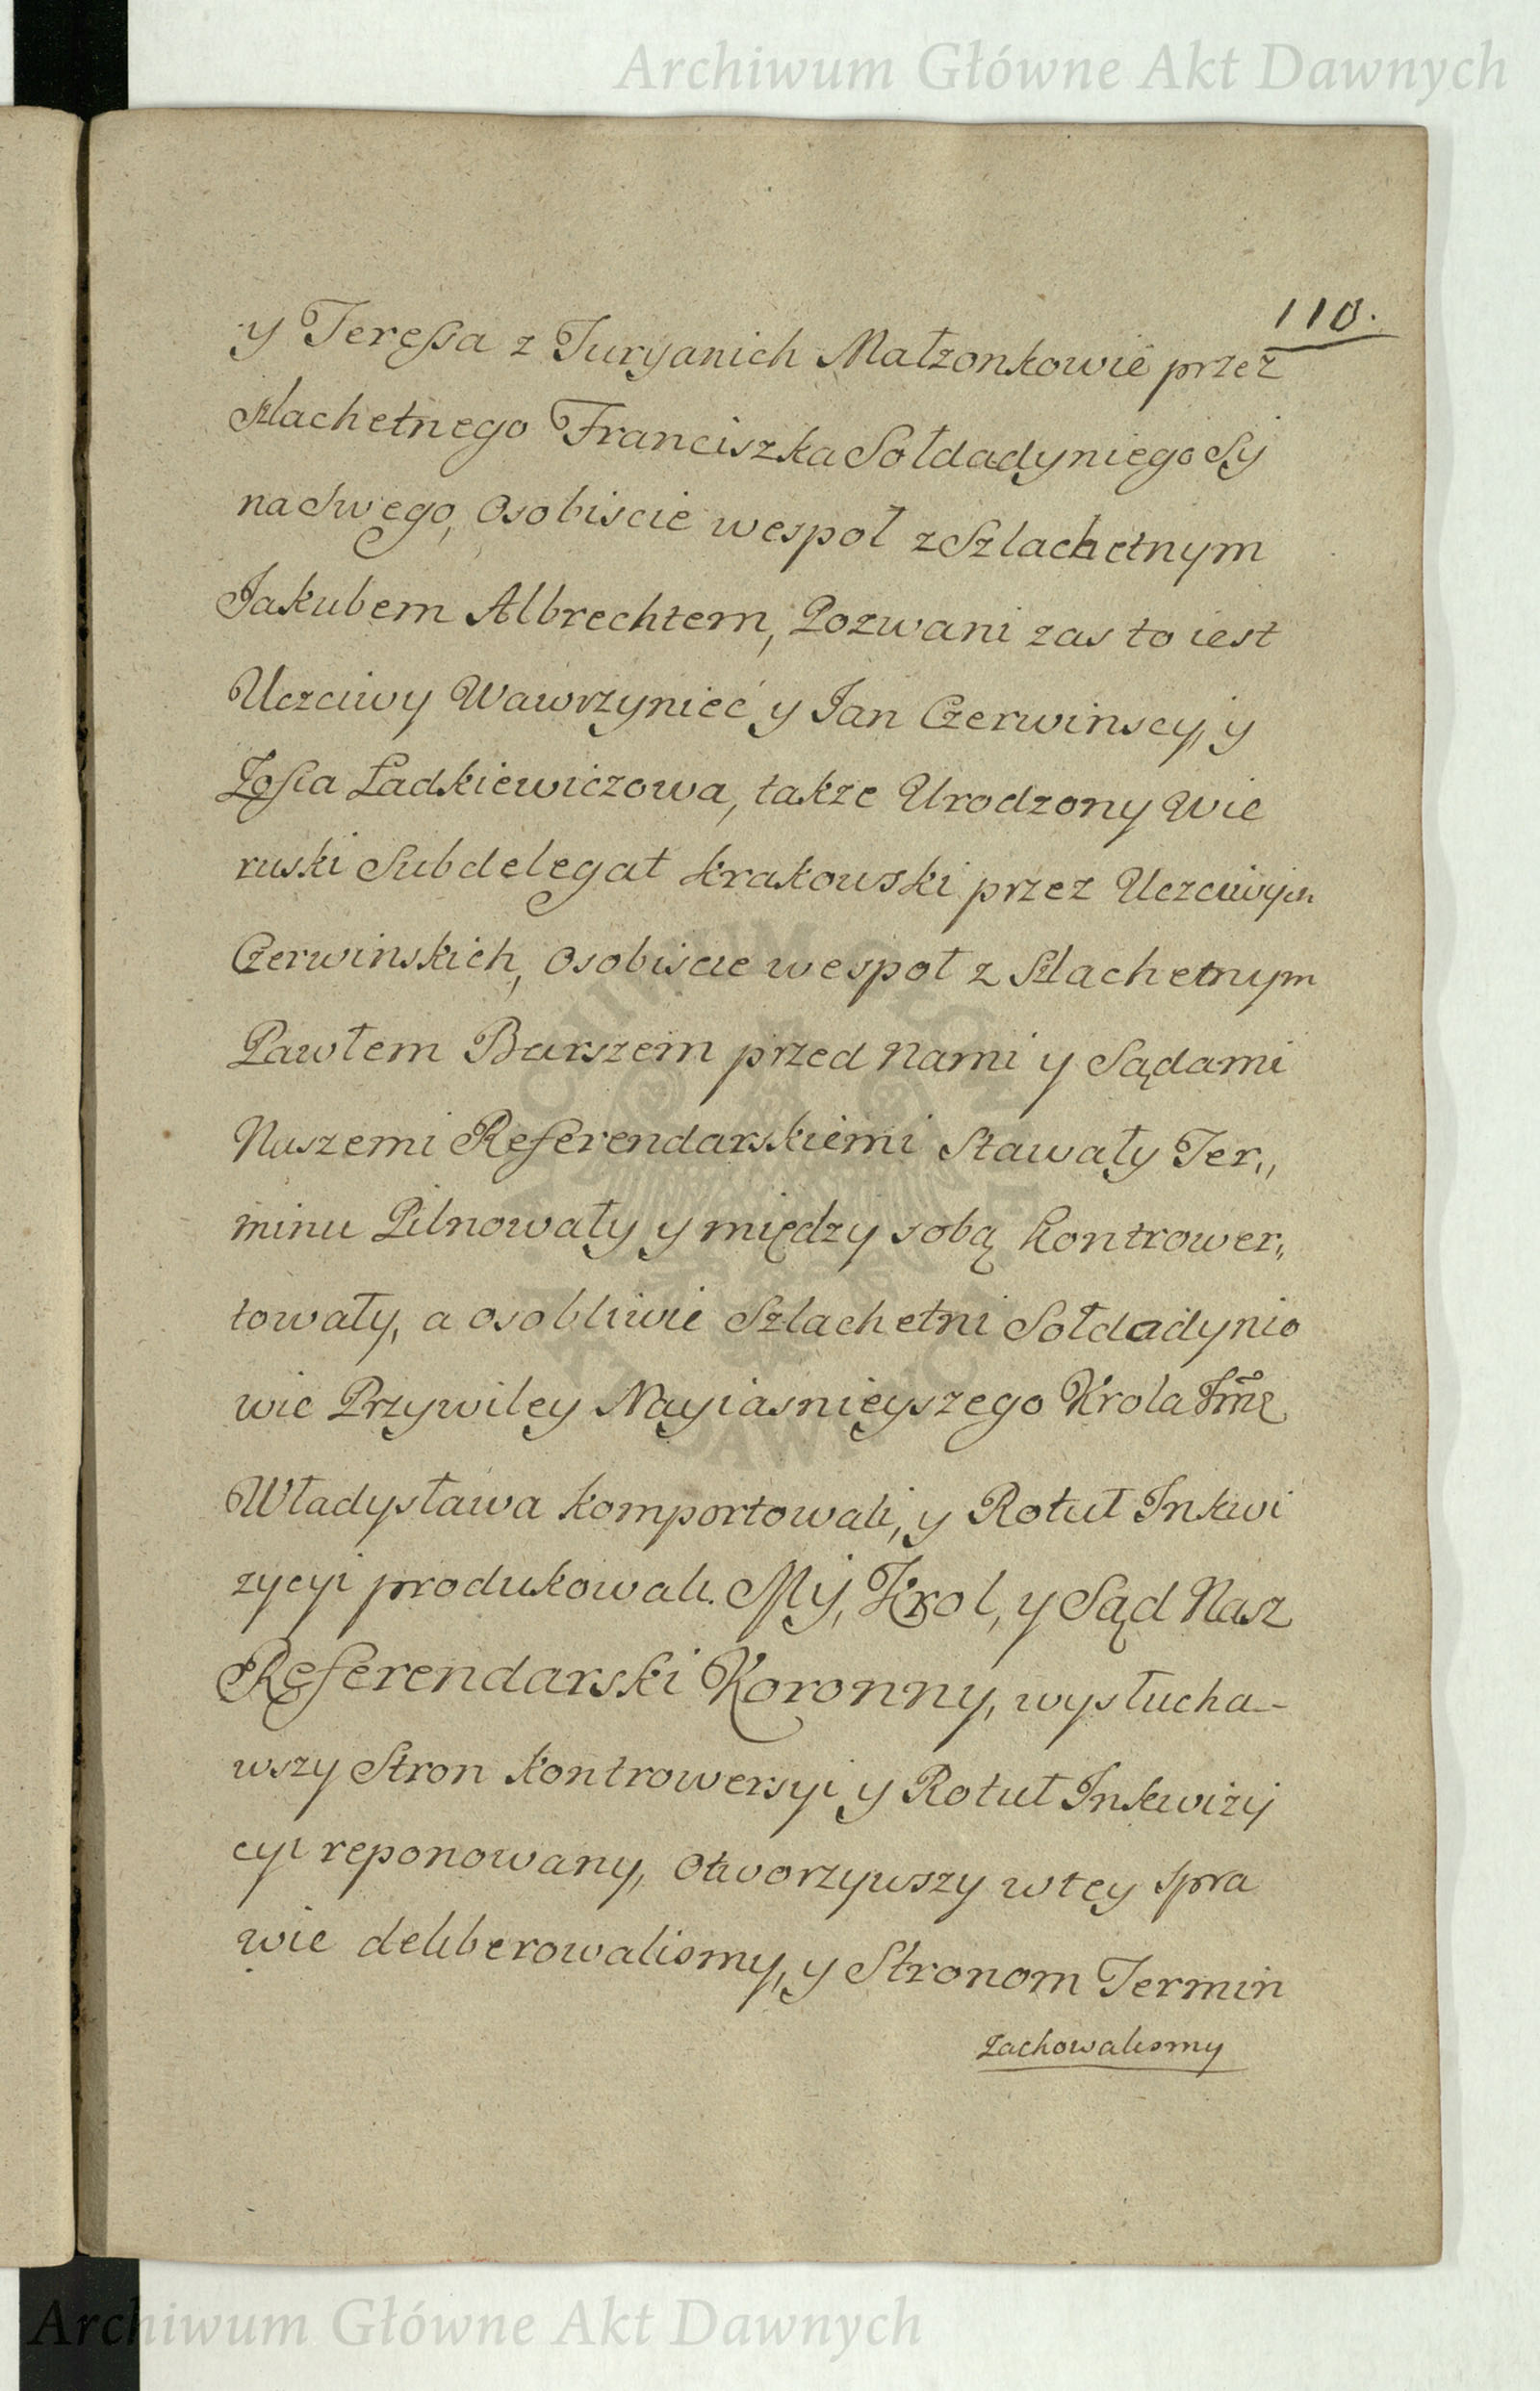 Archiwum Główne Akt Dawnych
110.
y Teressa z Turyanich Małzonkowie przez
Szlachetnego Franciszka Sołdadyniego Sy
na Swego, Osobiscie wespoł z Szlachetnym
Jakubem Albrechtem, Pozwani zas to iest
Uczciwy Wawrzyniec y Jan Czerwinscy, y
Zofia Ladkiewiczowa, takze Urodzony Wie
ruski Subdelegat krakowski przez Uczciwych
Czerwinskich, Osobiscie wespoł z Szlachetnym
Pawłem Burszem przed Nami y Sądami
Naszemi Referendarskiemi Stawały Ter,,
minu Pilnowały y między sobą kontrower,,
towały, a osobliwie Szlachetni Sołdadynio
wie Przywiley Nayiasnieyszego Krola Jmę
Władysława komportowali, y Rotuł Inkwi
zycyi produkowali. My, Krol, y Sąd Nasz
Referendarski Koronny, wysłucha-
wszy Stron kontrowersyi y Rotuł Inkwizy
cyi reponowany, Otworzywszy w tey spra
wie deliberowalismy, y Stronom Termin
zachowalismy
Archiwum Główne Akt Dawnych